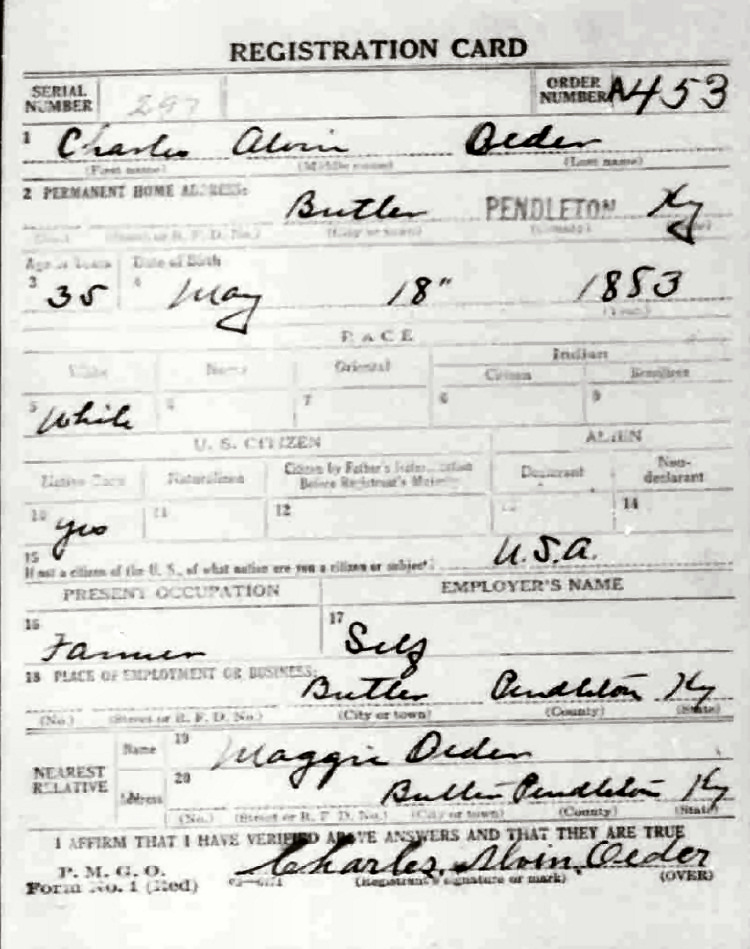 REGISTRATION CARD
SERIAL NUMBER 297 ORDER NUMBER A453
1 Charles Alvin Oeder
(First name) (Middle name) (Last name)
2 PERMANENT HOME ADDRESS:
Butler PENDLETON Ky
(No.) (Street or R. F. D. No.) (City or town) (County) (State)
Age in Years Date of Birth
3 35 4 May 18" 1883
(Year)
RACE
White Negro Oriental Indian
Citizen Noncitizen
5 White 6 7 8 9
U. S. CITIZEN ALIEN
Native Born Naturalized Citizen by Father's Naturalization Before Registrant's Majority Declarant Non-declarant
10 Yes 11 12 13 14
15 If not a citizen of the U. S., of what nation are you a citizen or subject? U.S.A.
PRESENT OCCUPATION EMPLOYER'S NAME
16 Farmer 17 Self
18 PLACE OF EMPLOYMENT OR BUSINESS:
Butler Pendleton Ky
(No.) (Street or R. F. D. No.) (City or town) (County) (State)
NEAREST RELATIVE
Name 19 Maggie Oeder
Address 20 Butler Pendleton Ky
(No.) (Street or R. F. D. No.) (City or town) (County) (State)
I AFFIRM THAT I HAVE VERIFIED ABOVE ANSWERS AND THAT THEY ARE TRUE
P. M. G. O.
Form No. 1 (Red) Charles Alvin Oeder
(Registrant's signature or mark) (OVER)